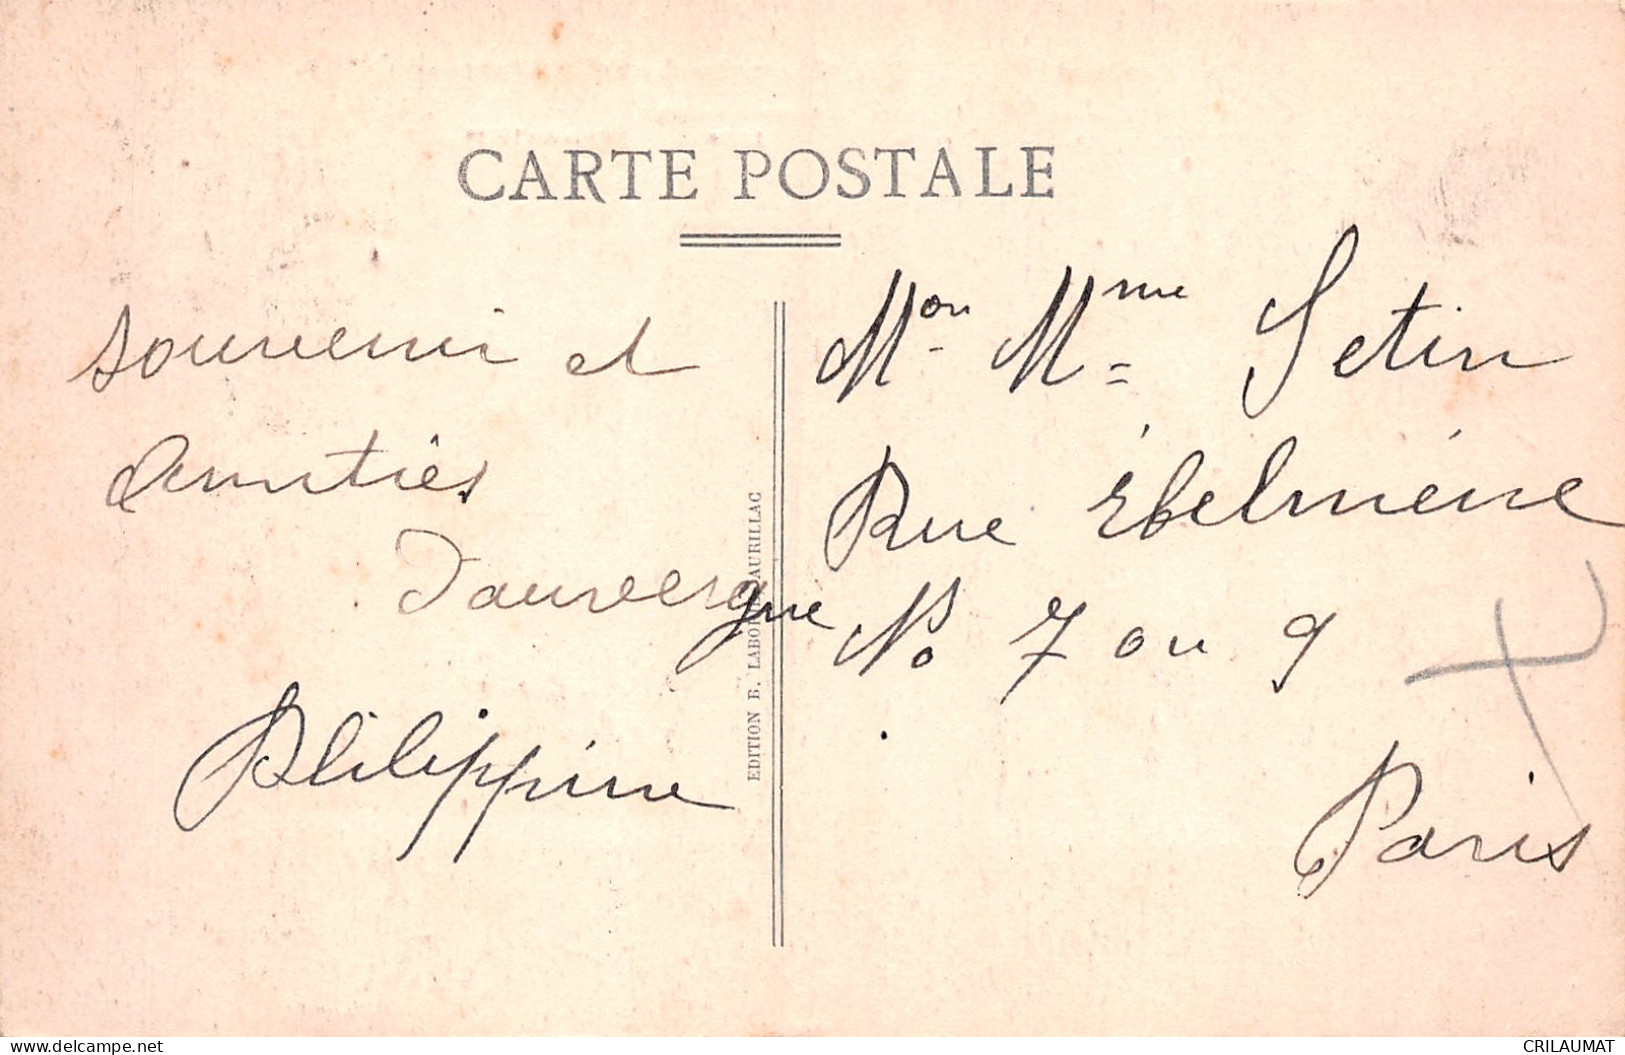 CARTE POSTALE
souvenir et
Amitiés
Dauvergne
Philippine
EDITION B. LABORIE AURILLAC
Mon Mme Setin
Rue Ébelméne
No 7 ou 9
Paris
www.delcampe.net
CRILAUMAT